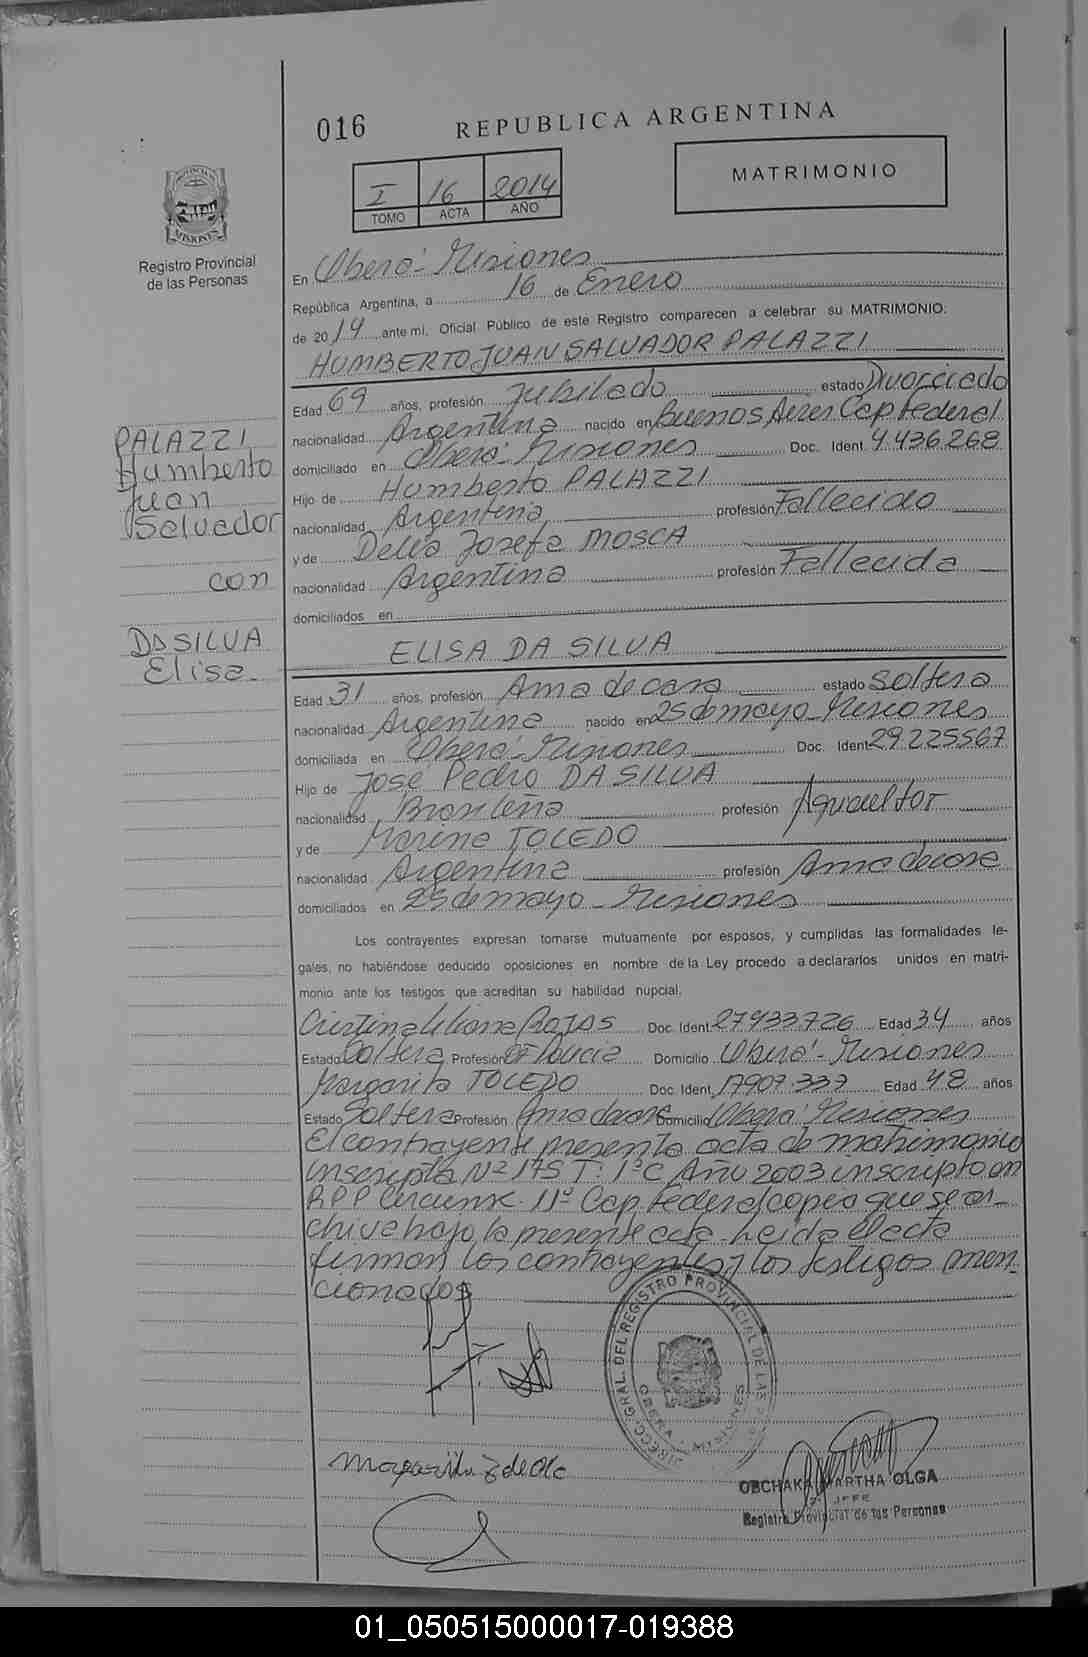 016
REPUBLICA ARGENTINA
I 16 2014
TOMO ACTA AÑO
MATRIMONIO
PROVINCIA DE
MISIONES
Registro Provincial
de las Personas
En Oberá - Misiones
República Argentina, a 16 de Enero
de 2014 ante mi. Oficial Público de este Registro comparecen a celebrar su MATRIMONIO:
HUMBERTO JUAN SALVADOR PALAZZI
Edad 69 años, profesión Jubilado estado Divorciado
nacionalidad Argentina nacido en Buenos Aires Cap Federal
domiciliado en Oberá - Misiones Doc. Ident. 4.436.268
Hijo de Humberto PALAZZI
nacionalidad Argentina profesión Fallecido
y de Delia Josefa MOSCA
nacionalidad Argentina profesión Fallecida
domiciliados en
PALAZZI
Humberto
Juan
Salvador
con
DA SILVA
Elisa
ELISA DA SILVA
Edad 31 años, profesión Ama de casa estado soltera
nacionalidad Argentina nacido en 25 de mayo - Misiones
domiciliada en Oberá - Misiones Doc. Ident. 29.225567
Hijo de José Pedro DA SILVA
nacionalidad Brasileña profesión Agricultor
y de Marina TOLEDO
nacionalidad Argentina profesión Ama de casa
domiciliados en 25 de mayo - Misiones
Los contrayentes expresan tomarse mutuamente por esposos, y cumplidas las formalidades le-
gales, no habiéndose deducido oposiciones en nombre de la Ley procedo a declararlos unidos en matri-
monio ante los testigos que acreditan su habilidad nupcial.
Cristina Liliana ROJAS Doc. Ident. 27933726 Edad 34 años
Estado Soltera Profesión Policia Domicilio Oberá - Misiones
Margarita TOLEDO Doc. Ident. 17909.337 Edad 48 años
Estado Soltera Profesión Ama de casa Domicilio Oberá Misiones
El contrayente presenta acta de matrimonio
inscripta Nº 175 T: 1ºC Año 2003 inscripto en
R.P.P Circunsc. 11º Cap Federal copia que se ar-
chiva bajo la presente acta. Leida el acta
firman los contrayentes y los testigos men-
cionados
DIRECC. GRAL. DEL REGISTRO PROVINCIAL DE LAS
OBERA - MISIONES
OBCHAKA MARTHA OLGA
JEFE
Registro Provincial de las Personas
01_050515000017-019388